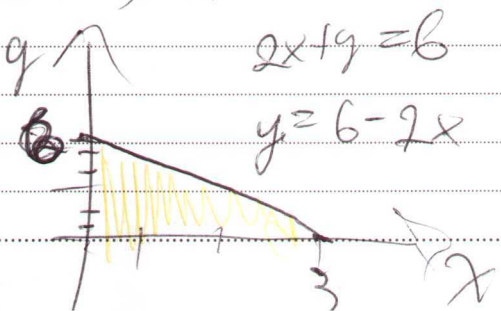 y
2x+y=6
6
y=6-2x
3
x